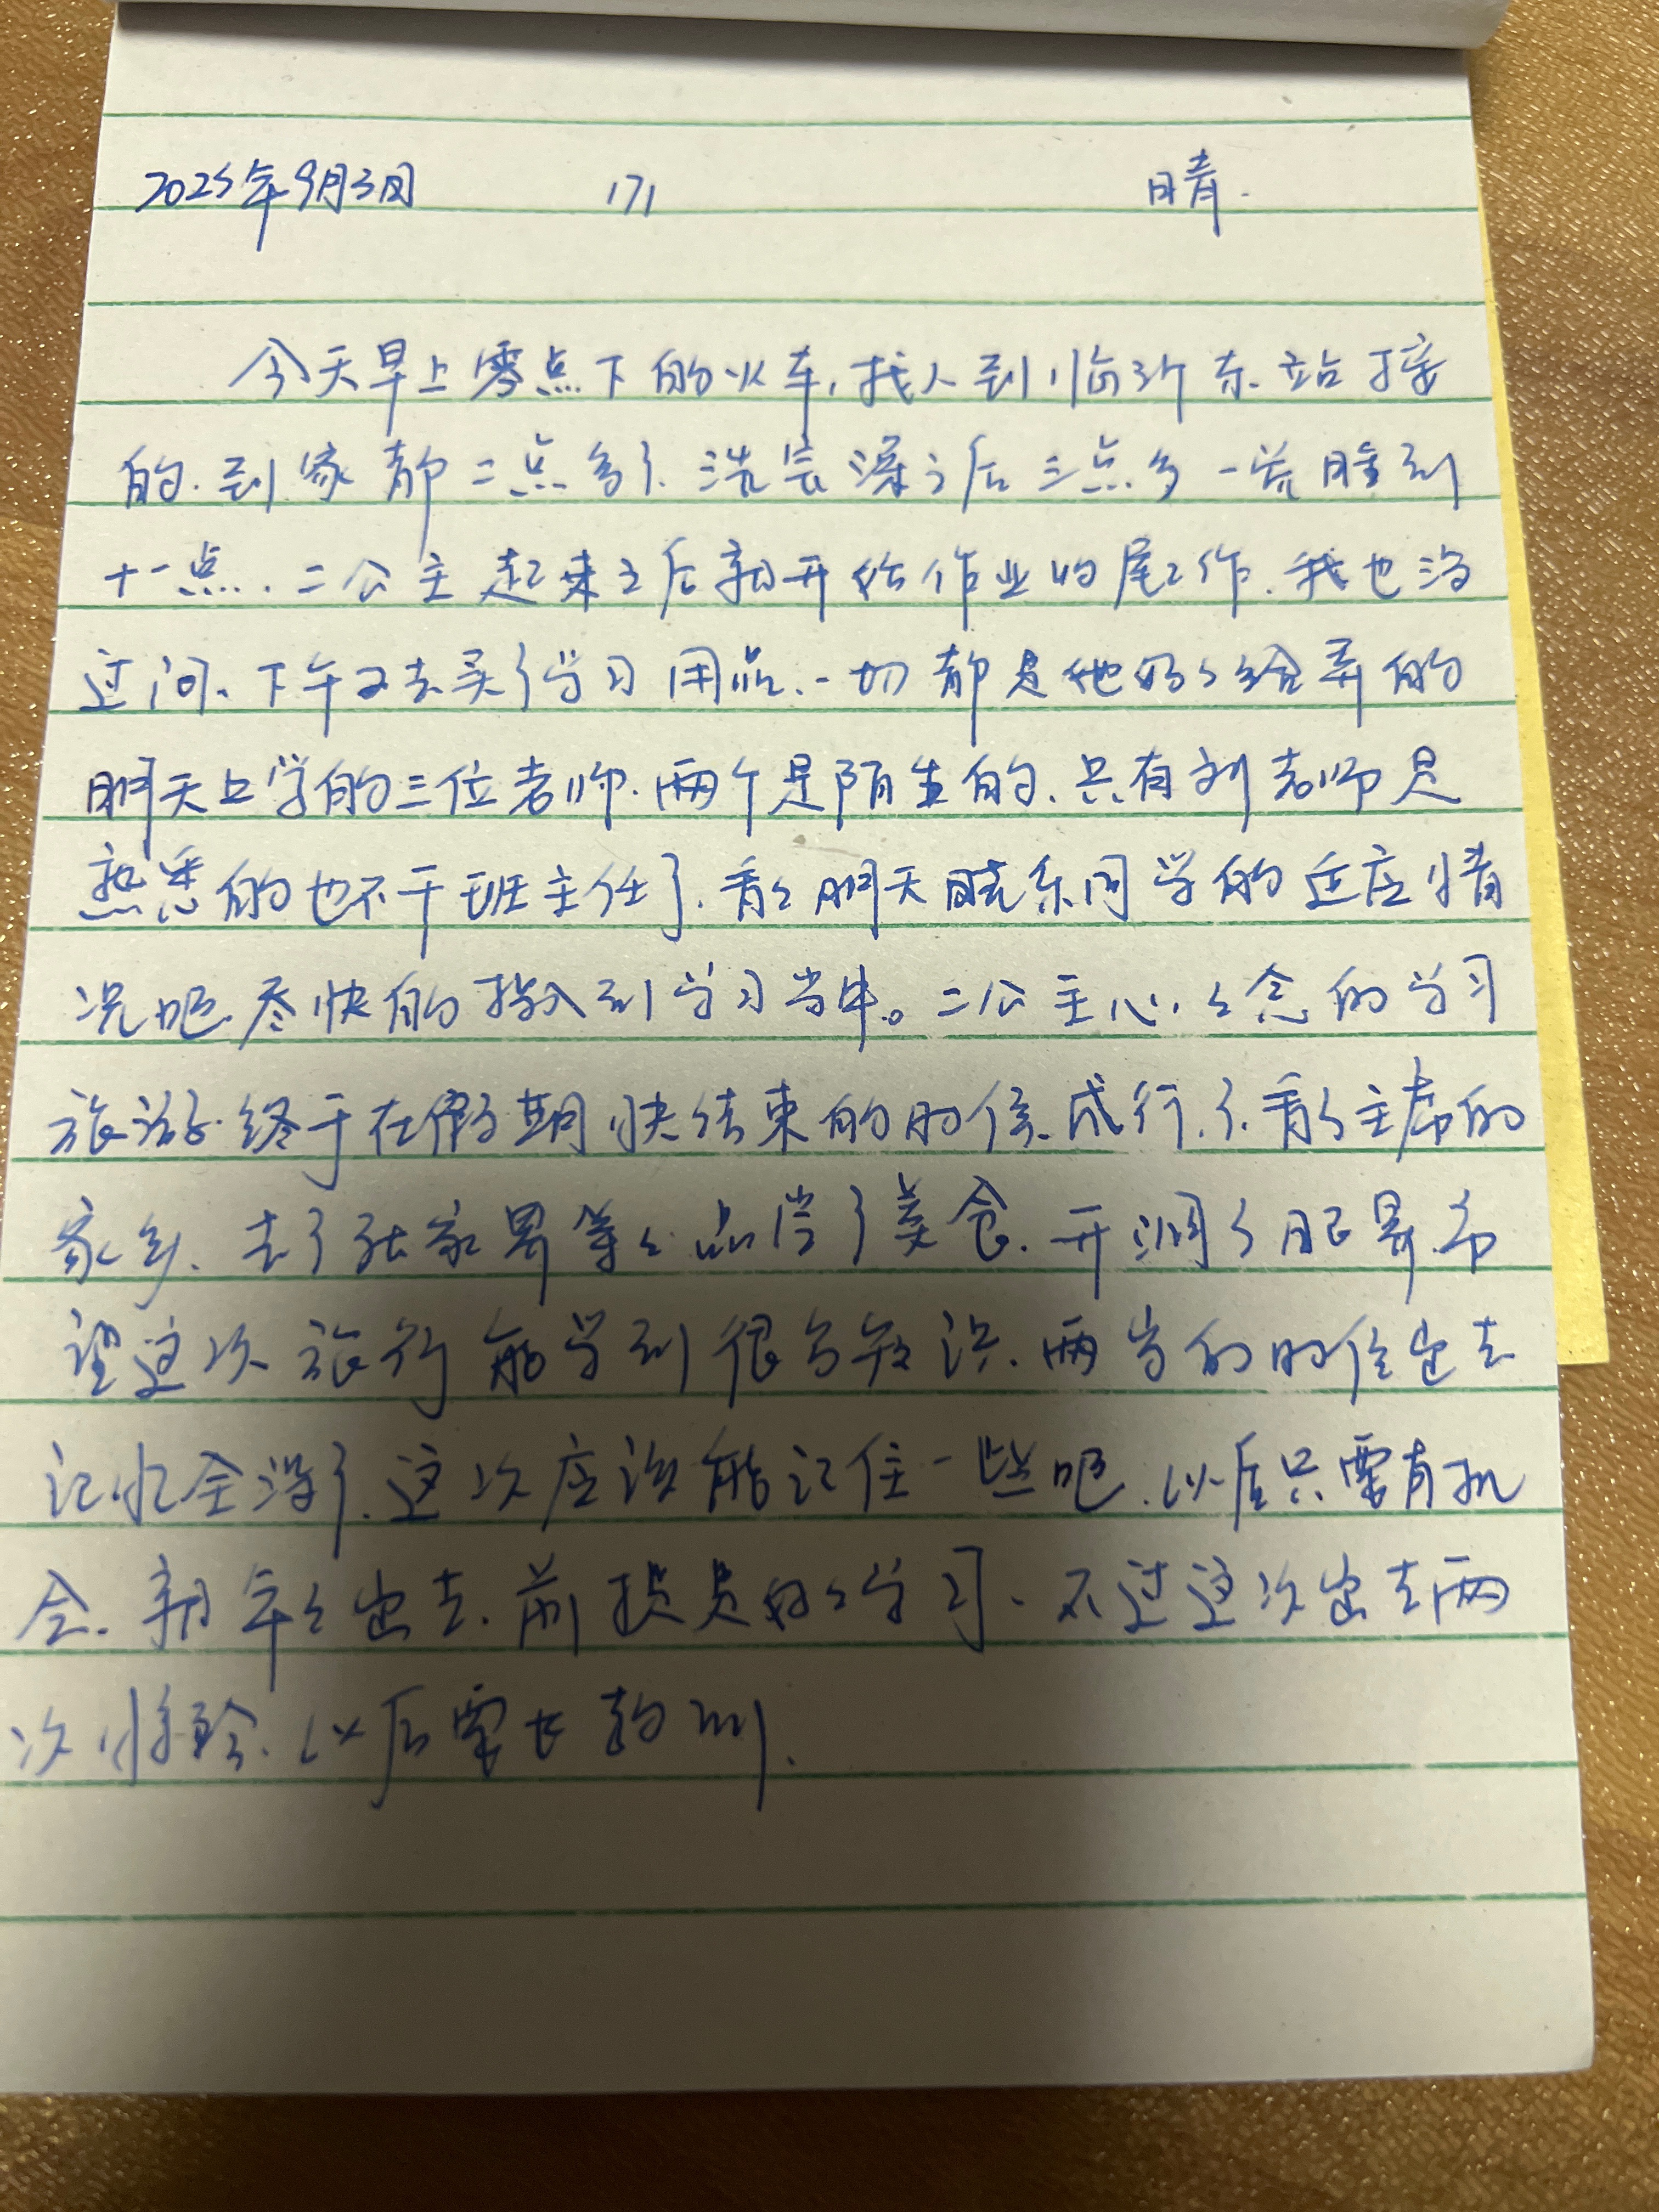 2025年9月3日 171 晴.
今天早上零点下的火车,找人到临沂东站接
的.到家都二点多了.洗完澡之后三点多一觉睡到
十一点.二公主起来之后就开始作业的尾工作.我也没
过问、下午又去买了学习用品.一切都是他妈妈给弄的
明天上学的三位老师.两个是陌生的.只有刘老师是
熟悉的也不干班主任了.看看明天晓东同学的适应情
况吧.尽快的投入到学习当中。二公主心心念念的学习
旅游.终于在假期快结束的时候.成行了.看了主席的
家乡.去了张家界等等.品尝了美食.开阔了眼界.希
望这次旅行能学到很多知识.两岁的时候出去
记忆全没了.这次应该能记住一些吧.以后只要有机
会.朝年年出去.前提是好好学习.不过这次出去两
次惊险.以后要长教训.